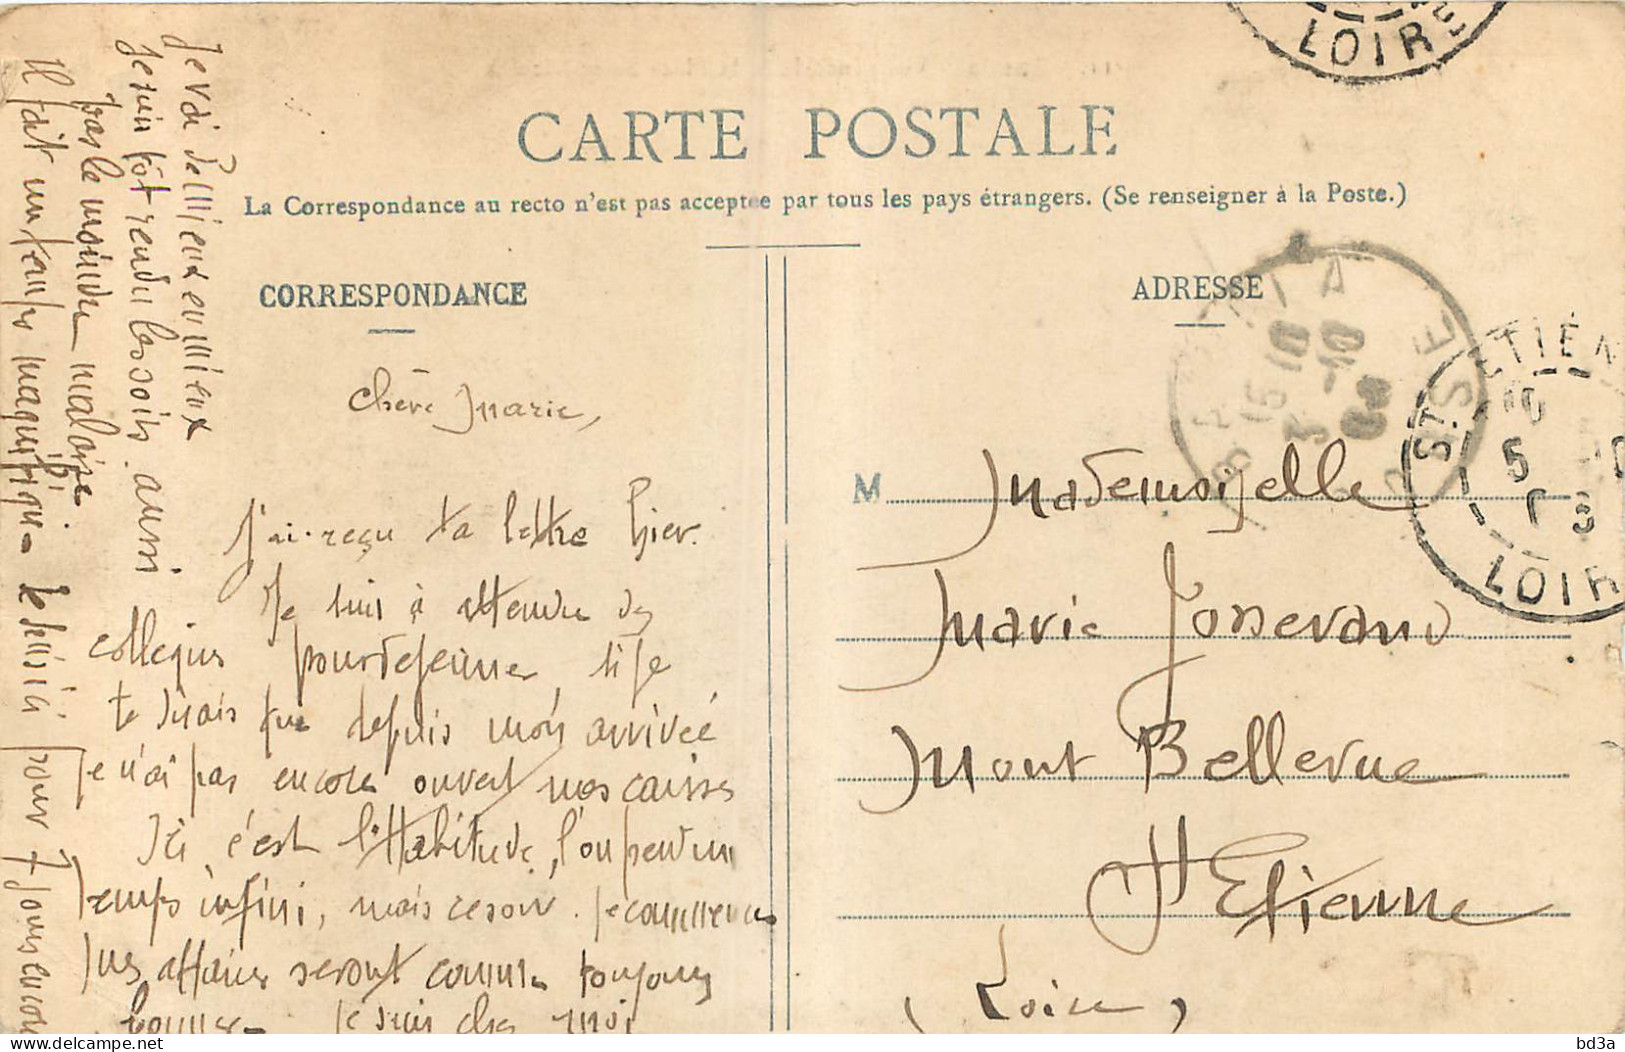 CARTE POSTALE
La Correspondance au recto n'est pas acceptée par tous les pays étrangers. (Se renseigner à la Poste.)
CORRESPONDANCE
Chère Marie,
J'ai reçu ta lettre hier.
Je suis à attendre des
collègues pour dejeuner, si je
te disais que depuis mon arrivée
je n'ai pas encore ouvert mes caisses
Ici c'est l'Habitude, l'on perd un
temps infini, mais ce soir je commence
mes affaires seront comme toujours
bonnes je suis chez moi
Je vai de mieux en mieux
Je suis tôt rendu les soirs aussi
pas le moindre malaise.
Il fait un temps magnifique. Je suis ici pour 7 jours encore
ADRESSE
M Mademoiselle
Marie Josserand
Mont Bellevue
St Etienne
(Loire)
LOIRE
15 10
3 -10
ST ETIEN
5
LOIR
delcampe.net
bd3a